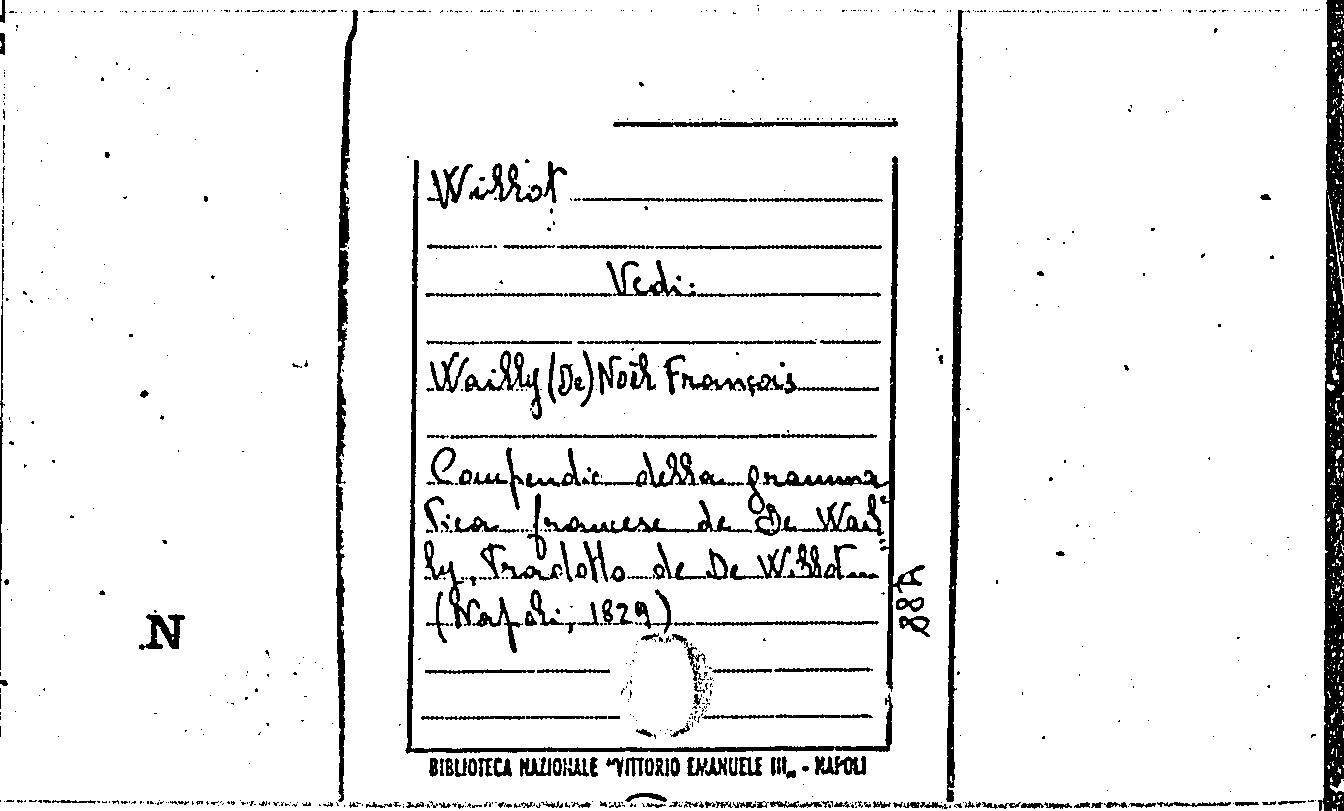 Willot
Vedi:
Wailly (De) Noël François
Compendio della gramma
tica francese de De Wail"
ly, Tradotto de De Willot
(Napoli, 1829)
88A
N
BIBLIOTECA NAZIONALE "VITTORIO EMANUELE III„ - NAPOLI